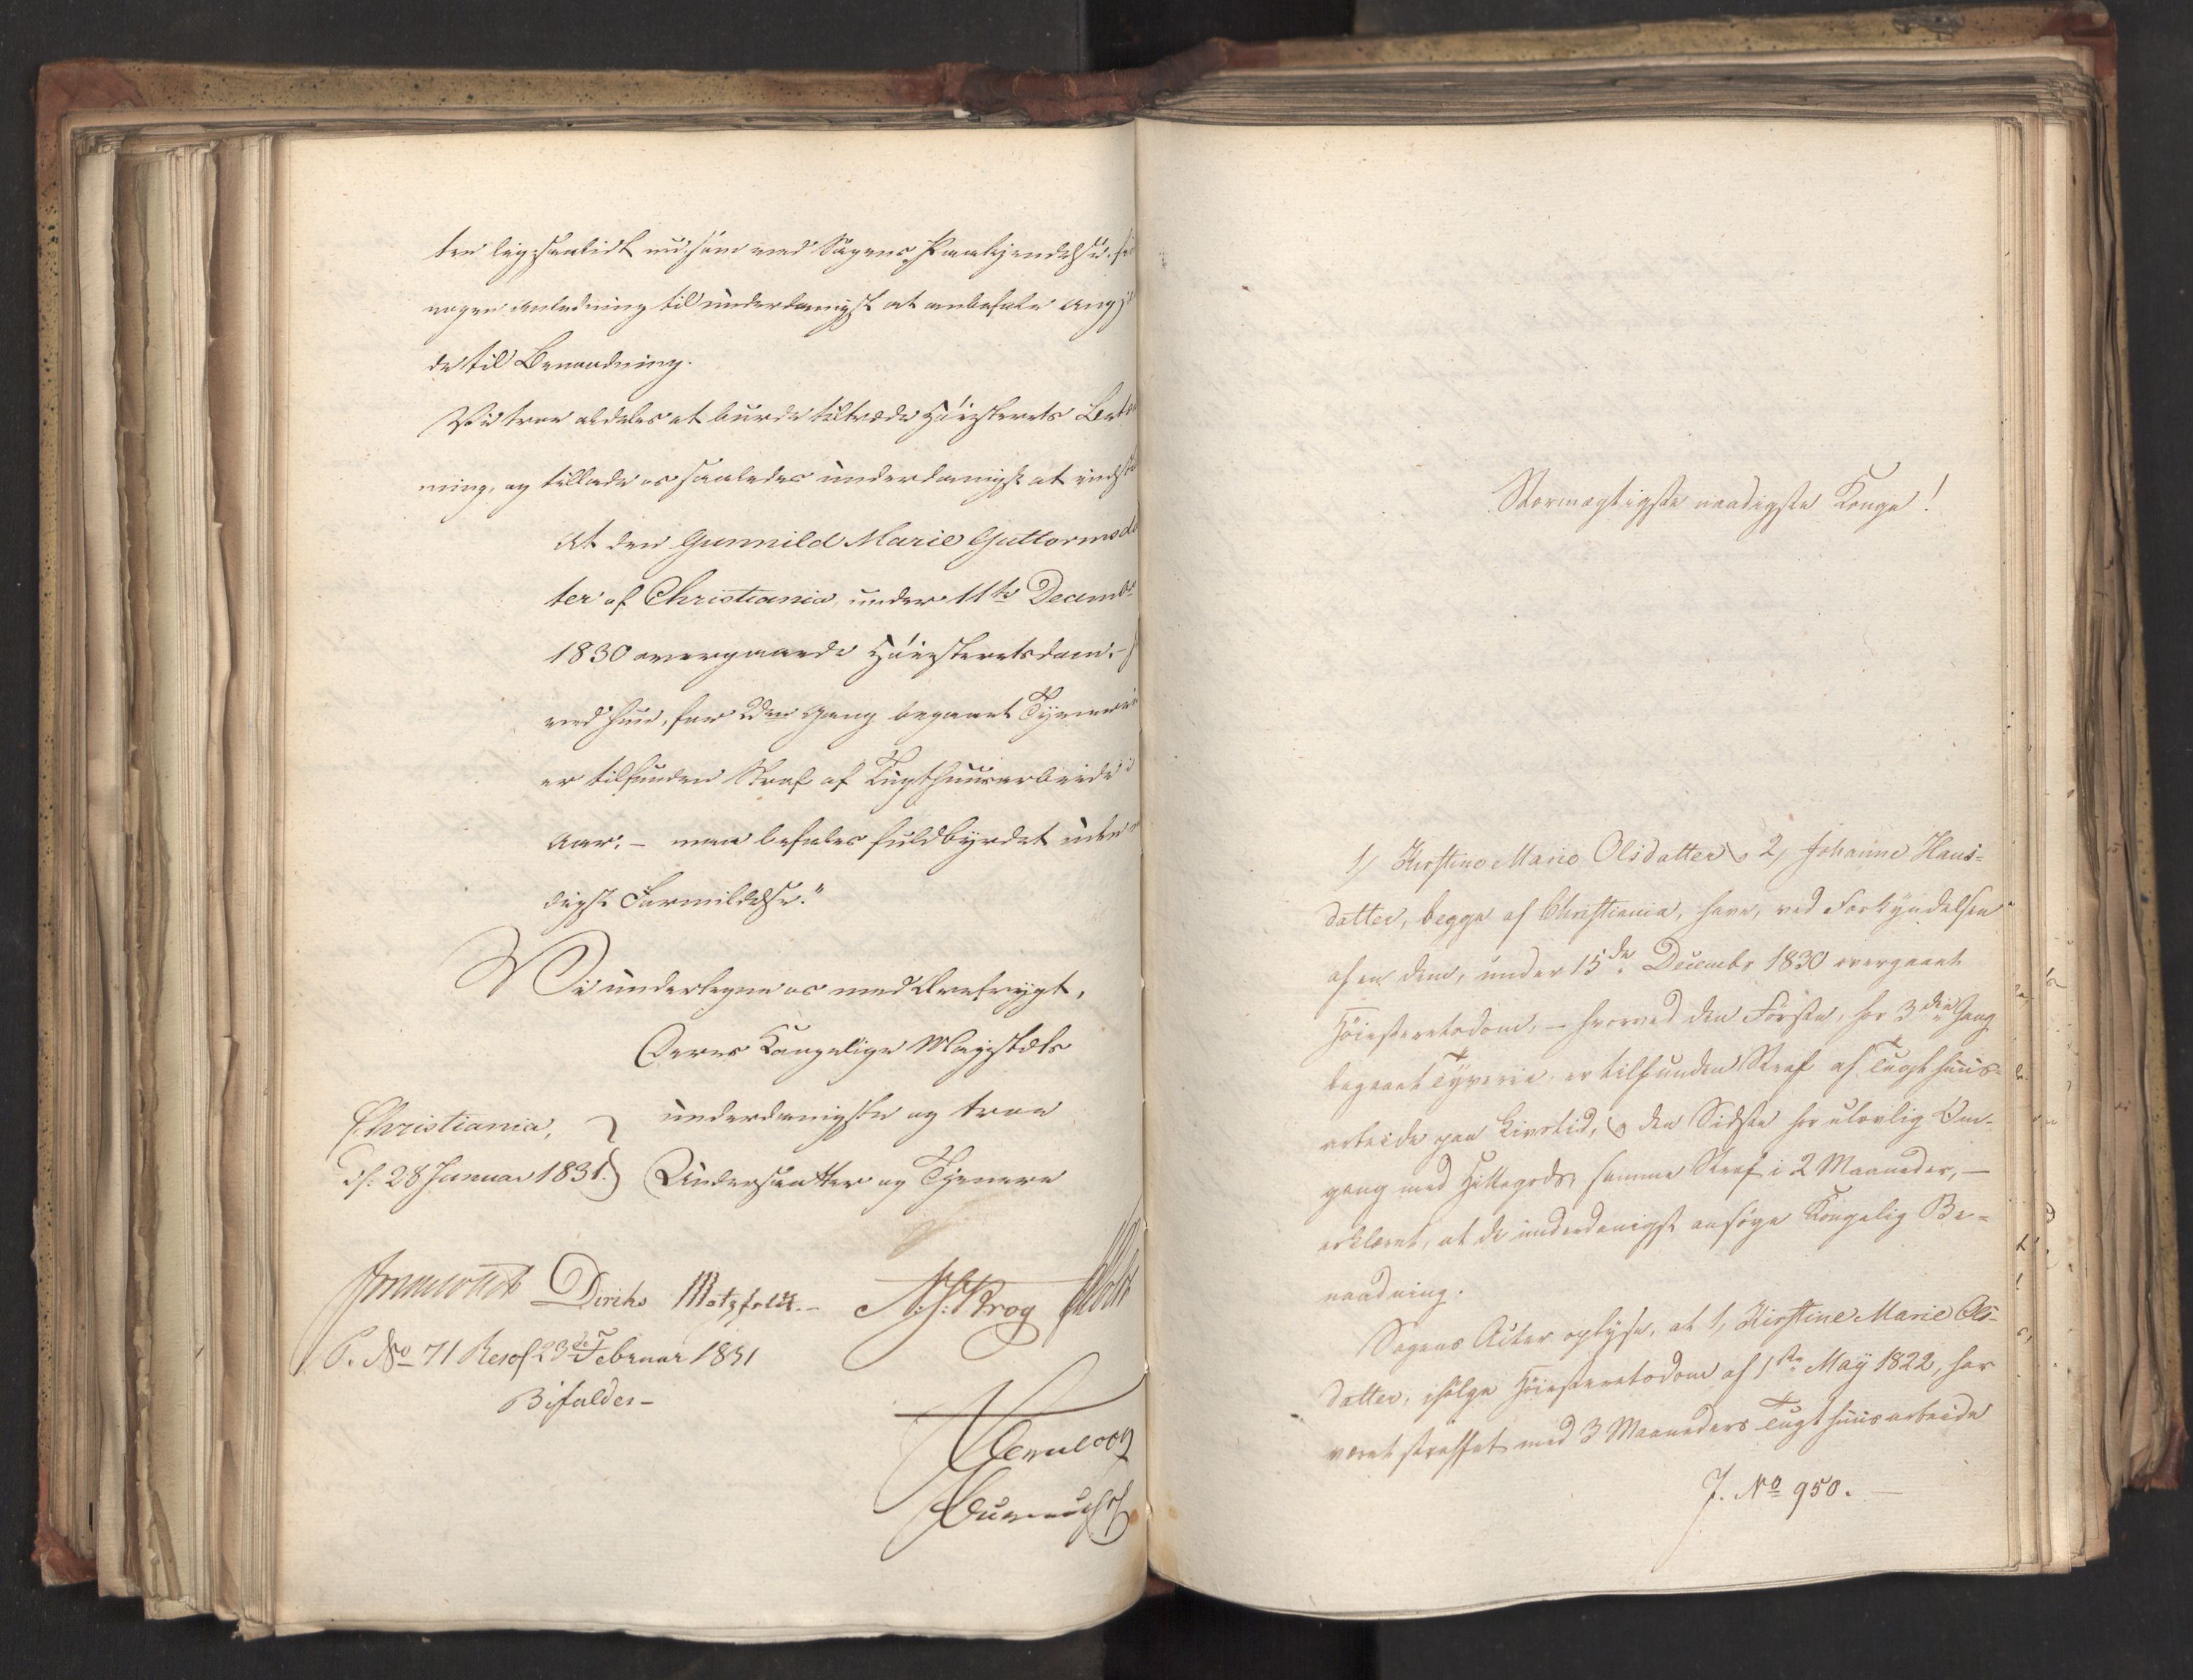 ter ligesaalidt nu som ved Sagens Paakjendelse,
nogen Anledning til underdanigst at anbefale
de til Benaadning.
Vi troe aldeles at burde tiltræde Høiesterets
ning, og tillade os saaledes underdanigst at
"At den Gunnild Marie Guttormsdat
ter af Christiania, under 11te Decembr
1830 overgaaede Høiesteretsdom, –
ved hun, for 2den Gang begaaet Tyverie
er tilfunden Straf af Tugthuusarbeide i
Aar, – maa befales fuldbyrdet uden
digst Formildelse."
Vi undertegne os med Ærefrygt,
Deres Kongelige Majestæts
underdanigste og troe
Christiania,
d. 28 Januar 1831. Undersaatter og Tjenere
Diriks Motzfeldt. – Krog
P. No 71 Resol. 23de Februar 1831
Bifaldes –
Stormægtigste naadigste Konge!
1, Kirstine Marie Olsdatter og 2, Johanne Hans=
datter, begge af Christiania, have, ved Forkyndelsen
af en dem, under 15de Decembr 1830 overgaaet
Høiesteretsdom, – hvorved den Første, for 3die Gang
begaaet Tyverie, er tilfunden Straf af Tugthuus=
arbeide paa Livstid, og den Sidste for ulovlig Om=
gang med Hittegods, samme Straf i 2 Maaneder, –
erklæret, at de underdanigst ansøge Kongelig Be=
naadning.
Sagens Acter oplyse, at 1, Kirstine Marie Ols=
datter, ifølge Høiesteretsdom af 1ste May 1822, har
været straffet med 3 Maaneders Tugthuusarbeide
J. No 950. –